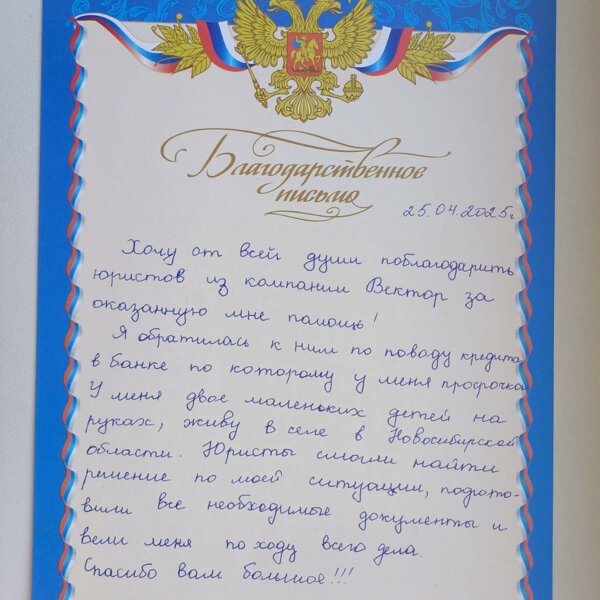 Благодарственное
письмо
25.04.2025г.
Хочу от всей души поблагодарить
юристов из компании Вектор за
оказанную мне помощь!
Я обратилась к ним по поводу кредита
в банке по которому у меня просрочка
У меня двое маленьких детей на
руках, живу в селе в Новосибирской
области. Юристы смогли найти
решение по моей ситуации, подгото-
вили все необходимые документы и
вели меня по ходу всего дела.
Спасибо вам большое!!!